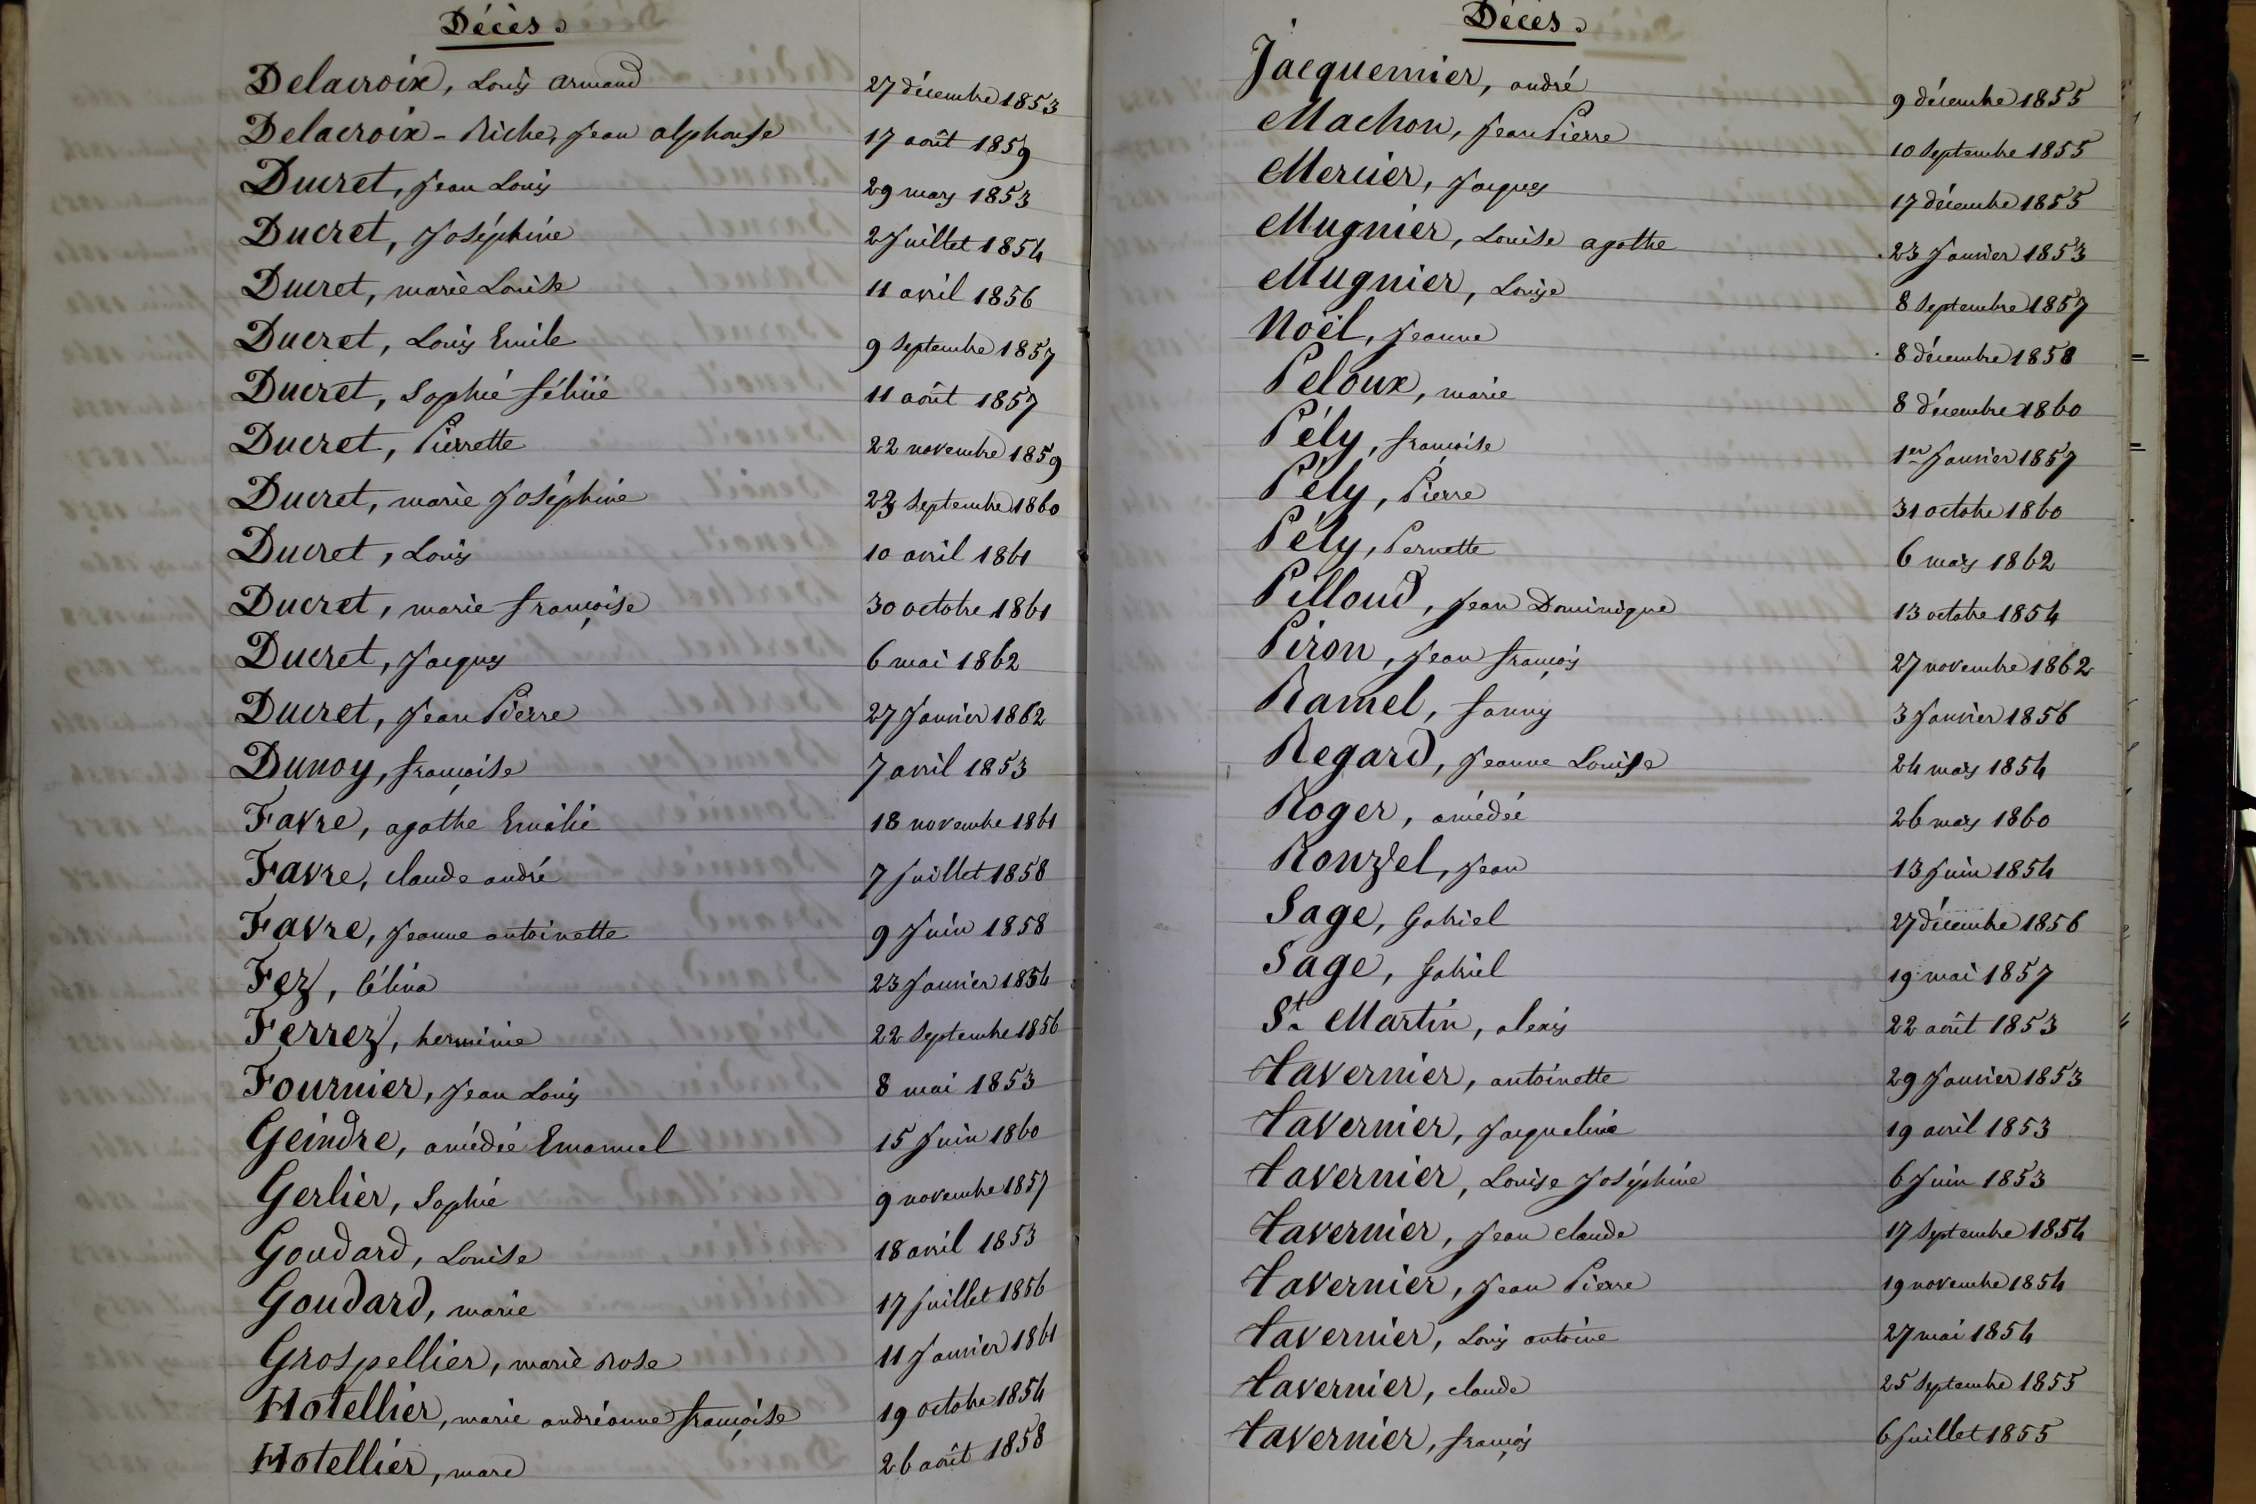 Décès.
Delacroix, Louis armand 27 décembre 1853
Delacroix - Riche, Jean alphonse 17 août 1859
Ducret, Jean Louis 29 mars 1853
Ducret, Joséphine 2 Juillet 1854
Ducret, marie Louise 11 avril 1856
Ducret, Louis Emile 9 Septembre 1857
Ducret, Sophie félicie 11 août 1857
Ducret, Pierrette 22 novembre 1859
Ducret, marie Joséphine 23 Septembre 1860
Ducret, Louis 10 avril 1861
Ducret, marie françoise 30 octobre 1861
Ducret, Jacques 6 mai 1862
Ducret, Jean Pierre 27 Janvier 1862
Dunoy, françoise 7 avril 1853
Favre, agathe Emélie 18 novembre 1861
Favre, claude andré 7 Juillet 1858
Favre, Jeanne antoinette 9 Juin 1858
Fez, Célina 23 Janvier 1854
Ferrez, herminie 22 Septembre 1856
Fournier, Jean Louis 8 mai 1853
Geindre, amédée Emanuel 15 Juin 1860
Gerlier, Sophie 9 novembre 1857
Goudard, Louise 18 avril 1853
Goudard, marie 17 Juillet 1856
Grospellier, marie Rose 11 Janvier 1861
Hotellier, marie andréanne françoise 19 octobre 1854
Hotellier, marc 26 août 1858
Décès.
Jacquemier, andré 9 décembre 1855
Machon, Jean Pierre 10 Septembre 1855
Mercier, Jacques 17 décembre 1855
Mugnier, Louise agathe 23 Janvier 1853
Mugnier, Louise 8 Septembre 1857
Noël, Jeanne 8 décembre 1858
Peloux, marie 8 décembre 1860
Pély, françoise 1er Janvier 1857
Pély, Pierre 31 octobre 1860
Pély, Pernette 6 mars 1862
Pilloud, Jean Dominique 13 octobre 1854
Piron, Jean françois 27 novembre 1862
Ramel, fanny 3 Janvier 1856
Regard, Jeanne Louise 24 mars 1854
Roger, amédée 26 mars 1860
Rouzel, Jean 13 Juin 1854
Sage, Gabriel 27 décembre 1856
Sage, Gabriel 19 mai 1857
St. Martin, alexis 22 août 1853
Tavernier, antoinette 29 Janvier 1853
Tavernier, Jacqueline 19 avril 1853
Tavernier, Louise Joséphine 6 Juin 1853
Tavernier, Jean claude 17 Septembre 1854
Tavernier, Jean Pierre 19 novembre 1854
Tavernier, Louis antoine 27 mai 1854
Tavernier, claude 25 Septembre 1855
Tavernier, françois 6 Juillet 1855